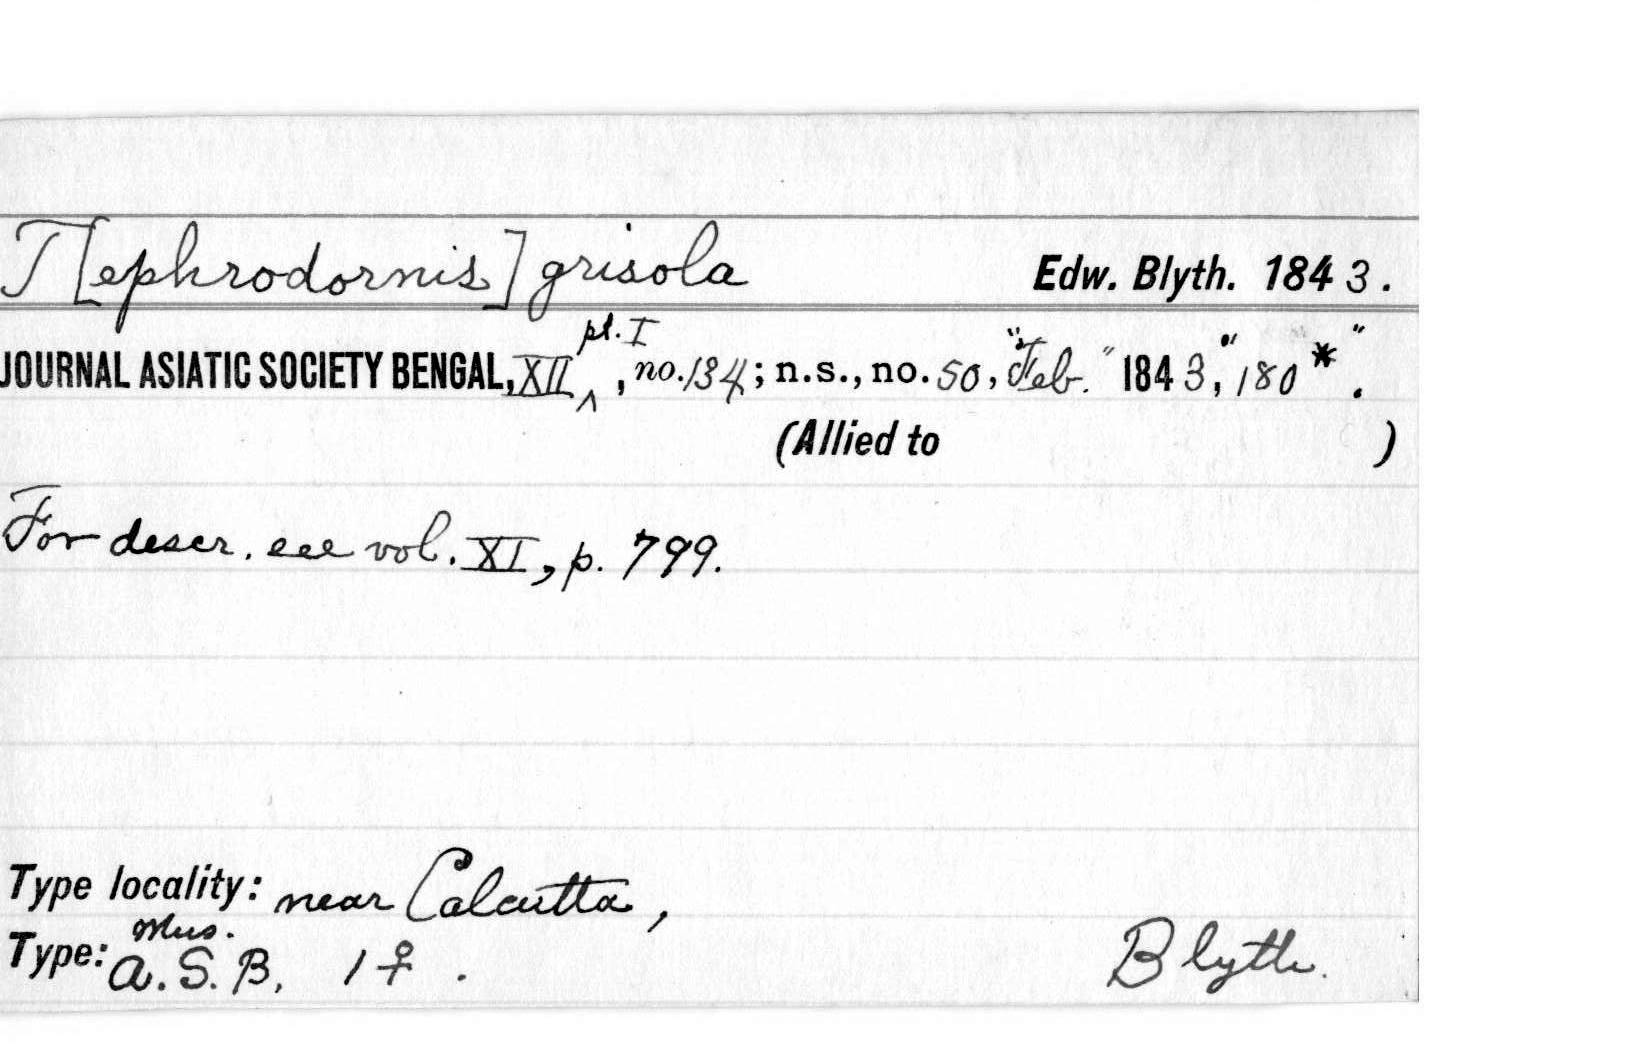 T[ephrodornis] grisola Edw. Blyth. 1843.
JOURNAL ASIATIC SOCIETY BENGAL, XII ^ pt. I, no. 134; n.s., no. 50, "Feb." 1843," 180*".
(Allied to )
For descr. see vol. XI, p. 799.
Type locality: near Calcutta,
Type: Mus. A.S.B. 1 ♀. Blyth.